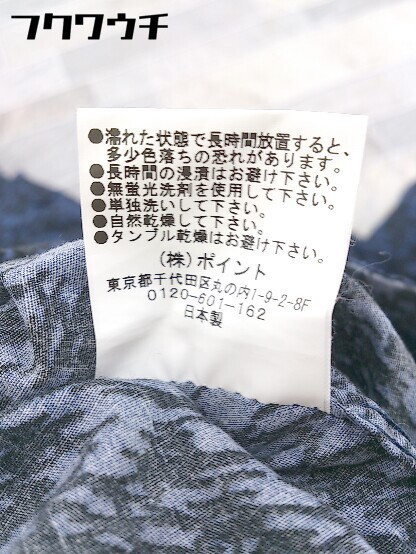 フクワウチ
●濡れた状態で長時間放置すると、
多少色落ちの恐れがあります。
●長時間の浸漬はお避け下さい。
●無蛍光洗剤を使用して下さい。
●単独洗いして下さい。
●自然乾燥して下さい。
●タンブル乾燥はお避け下さい。
(株)ポイント
東京都千代田区丸の内1-9-2-8F
0120-601-162
日本製